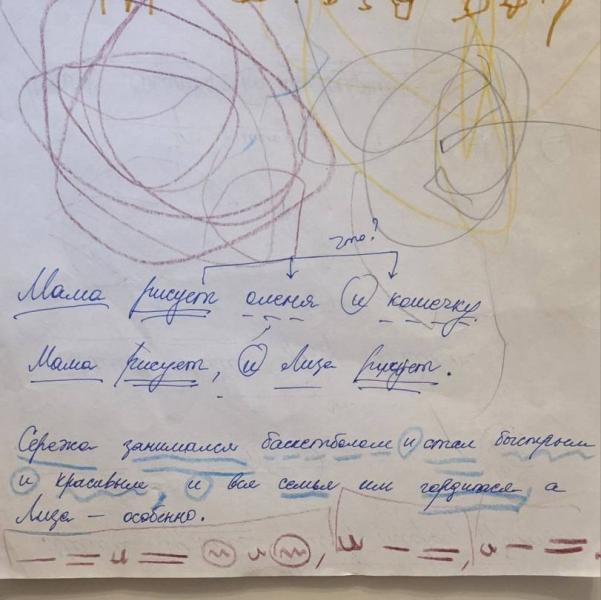 что?
Мама рисует оленя и кошечку
Мама рисует, и Лиза рисует.
Сережа занимался баскетболом и стал быстрым
и красивым, и вся семья им гордится, а
Лиза – особенно.
и и, и и